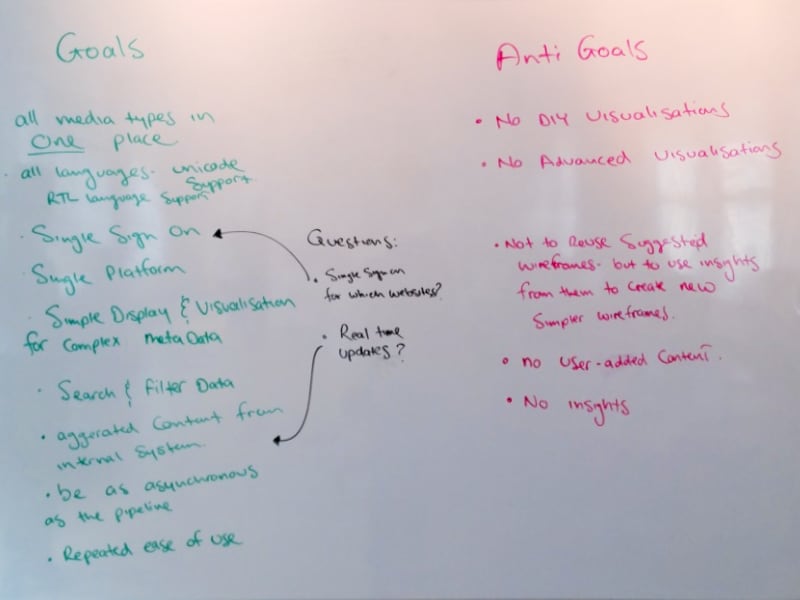 Goals
all media types in
One place
• all languages. unicode
Support
RTL language Support
• Single Sign On
• Single Platform
• Simple Display & Visualisation
for Complex metaData
• Search & Filter Data
• aggerated Content from
internal System.
• be as asynchronous
as the pipeline
• Repeated ease of use
Questions:
• Single Sign on
for which websites?
• Real time
updates?
Anti Goals
• No DIY Visualisations
• No Advanced Visualisations
• Not to Reuse Suggested
wireframes. but to use insights
from them to create new
Simpler wireframes.
• no User-added Content.
• No insghts